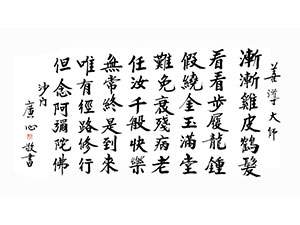 善導大師
漸漸雞皮鶴髮
看看步履龍鍾
假繞金玉滿堂
難免衰殘病老
任汝千般快樂
無常終是到來
唯有徑路修行
但念阿彌陀佛
沙門
廣心敬書